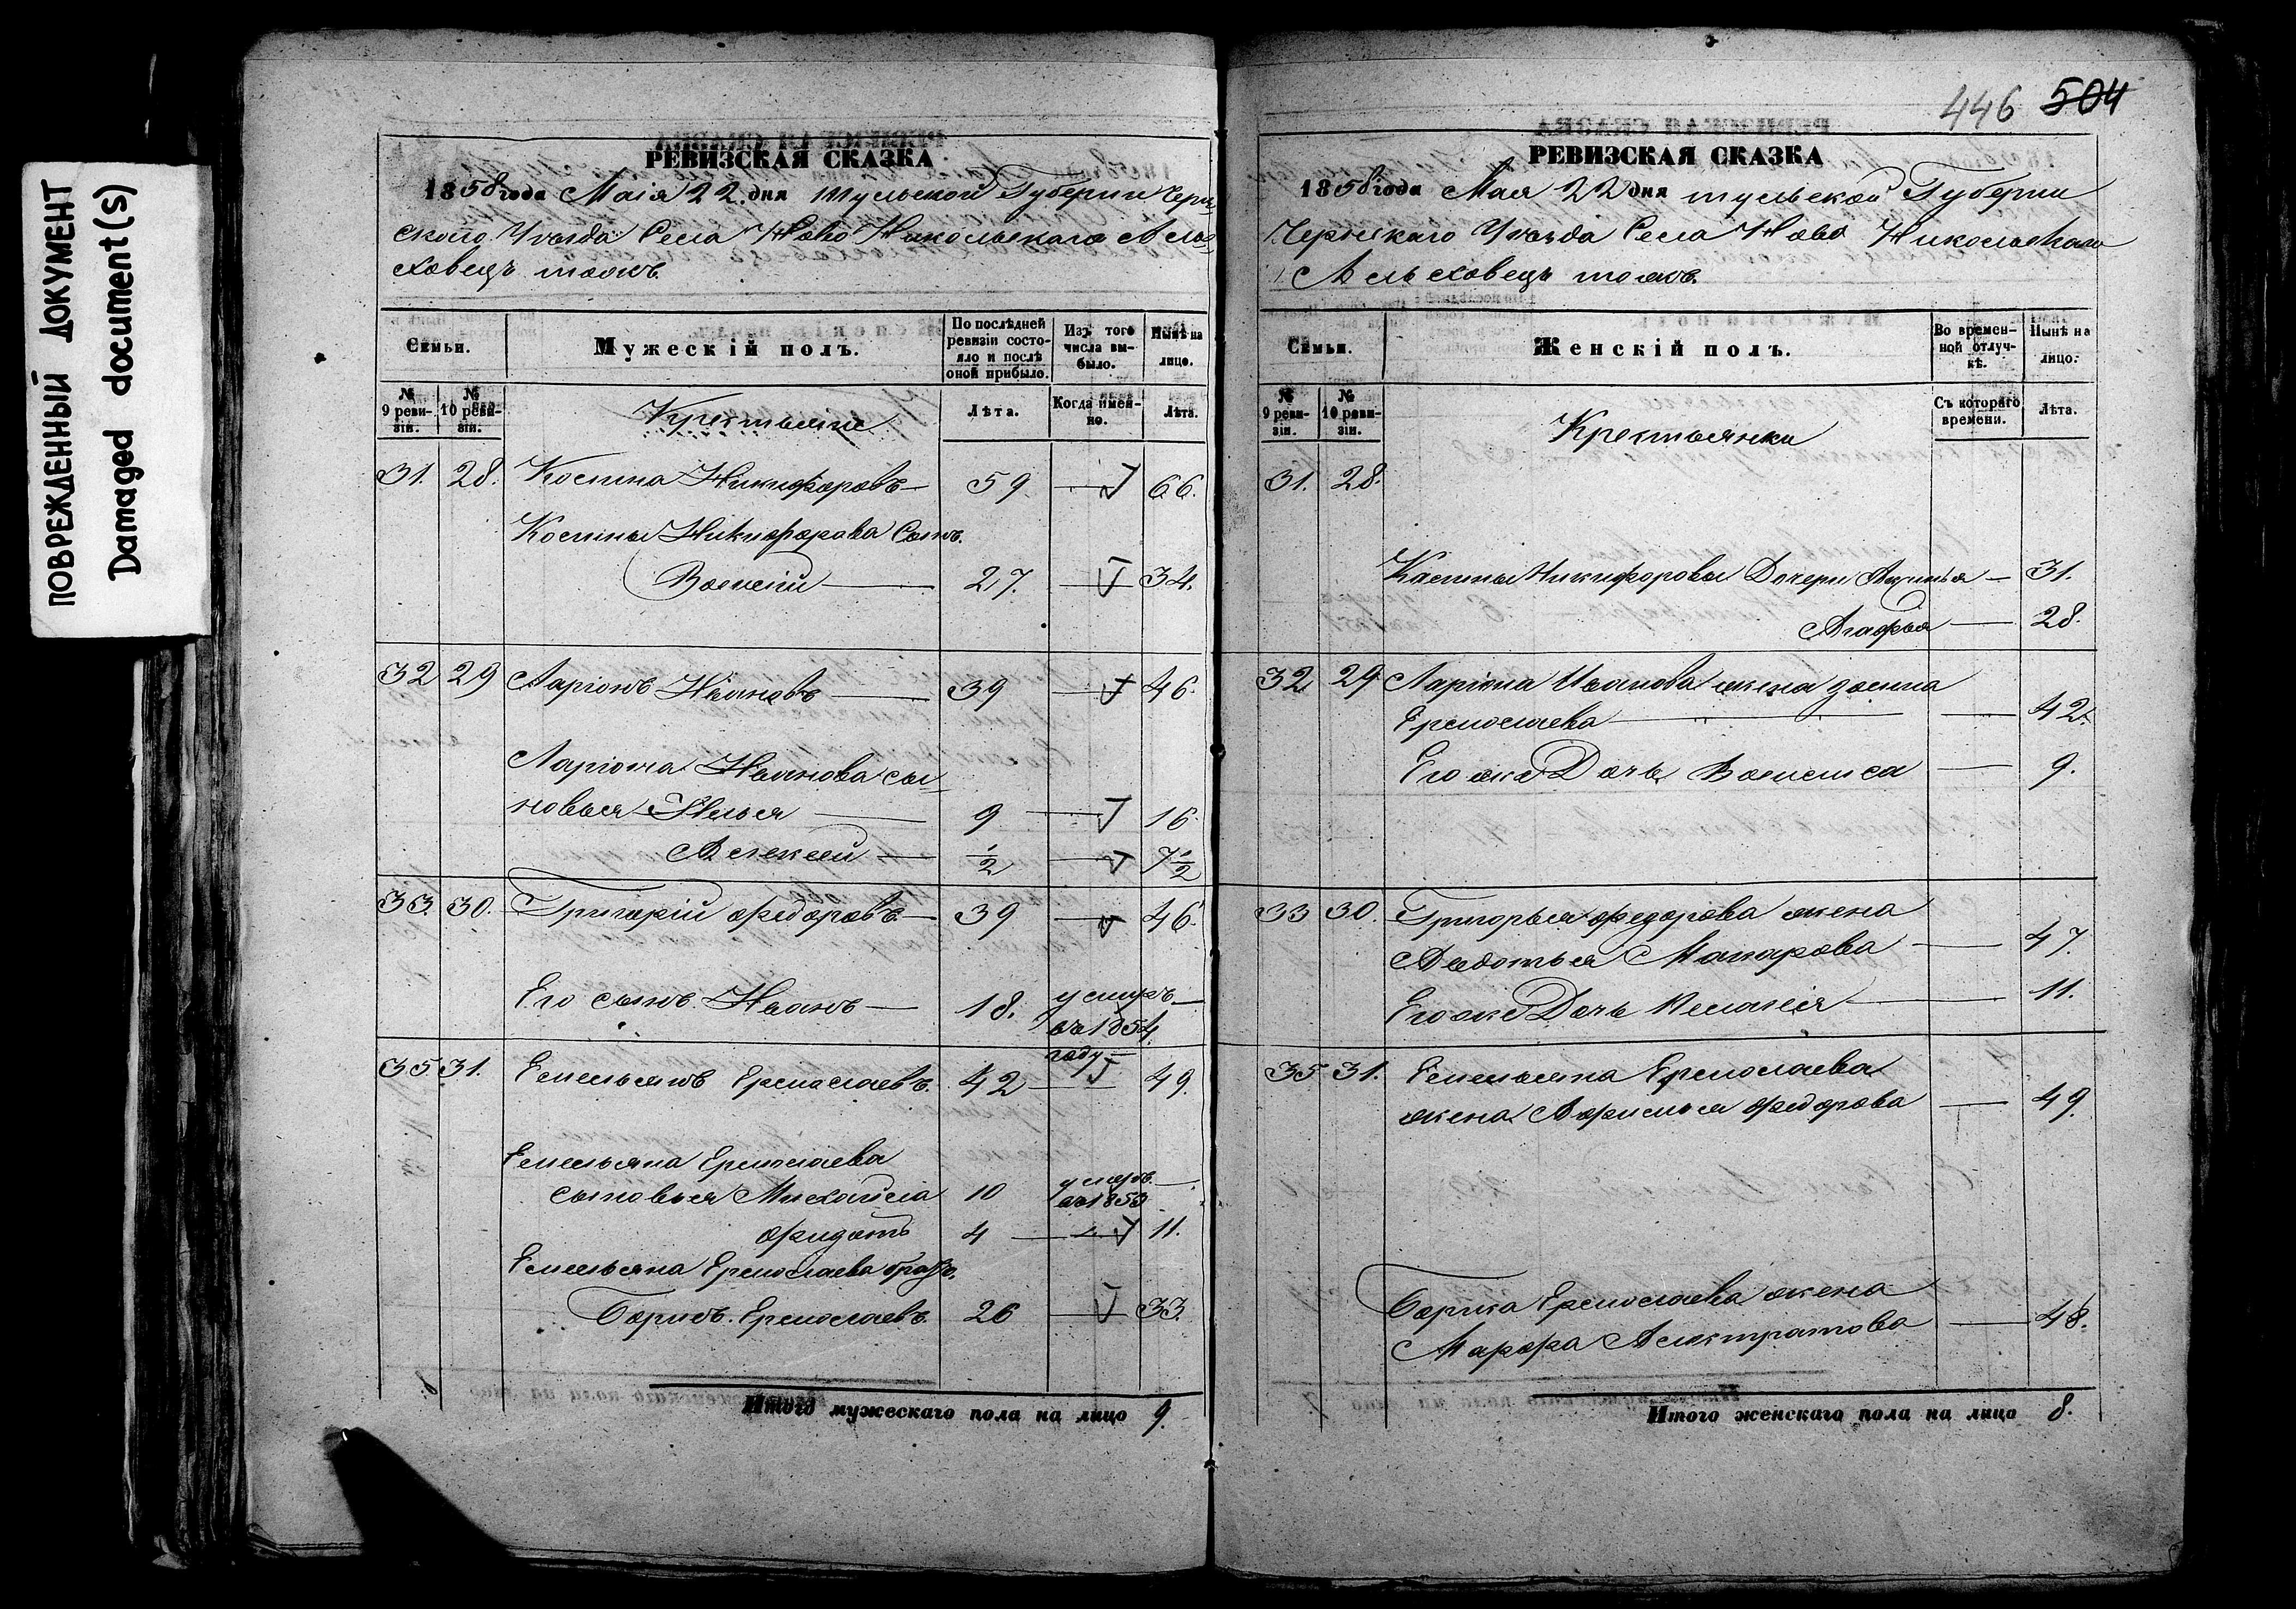 ПОВРЕЖДЕННЫЙ ДОКУМЕНТ
Damaged document(s)
РЕВИЗСКАЯ СКАЗКА
1858 года Маія 22 дня Тульской Губерніи Черн-
скаго Уѣзда Села Ново Никольскаго
тожъ
Семьи.
Мужескій полъ.
По послѣдней ревизіи состо-яло и послѣ оной прибыло.
Изъ того числа вы-было.
Нынѣ на лицо.
№ 9 реви-зіи.
№ 10 реви-зіи.
Крестьяне
Лѣта.
Когда имен-но.
Лѣта.
31. 28. Косьма Никифоровъ 59 66.
Косьмы Никифорова Сынъ
Василій 27. 34.
32 29 Ларіонъ Ивановъ 39 46.
Ларіона Иванова сы-
новья Илья 9 16
Алексей 1/2 7 1/2
33. 30. Григорій Федоровъ 39 46.
Его сынъ Иванъ 18. умеръ въ 1854 году
35 31. Емельянъ Ермолаевъ. 42 49.
Емельяна Ермолаева
сыновья Михайла 10 умеръ въ 1853
Фидотъ 4 11.
Емельяна Ермолаева братъ
Борисъ Ермолаевъ 26 33.
Итого мужескаго пола на лицо 9.
446 504
РЕВИЗСКАЯ СКАЗКА
1858 года Мая 22 дня тульской Губерни
Чернскаго Уѣзда Села Ново Никольскаго
тожъ.
Семьи.
Женскій полъ.
Во времен-ной отлуч-кѣ.
Нынѣ на лицо.
№ 9 реви-зіи.
№ 10 реви-зіи.
Крестьянки
Съ котораго времени.
Лѣта.
31. 28.
Касьмы Никифоровы Дочери Акулина 31.
Агафья 28.
32 29 Ларіона Иванова жена
Ермолаева 42.
Его же Дочь Василиса 9.
33 30. Григорья Федорова жена
Авдотья Макарова 47.
Его же Дочь Пелагія 11.
35 31. Емельяна Ермолаева
жена Афимья Федорова 49.
Бориса Ермолаева жена
Марфа 48.
Итого женскаго пола на лицо 8.